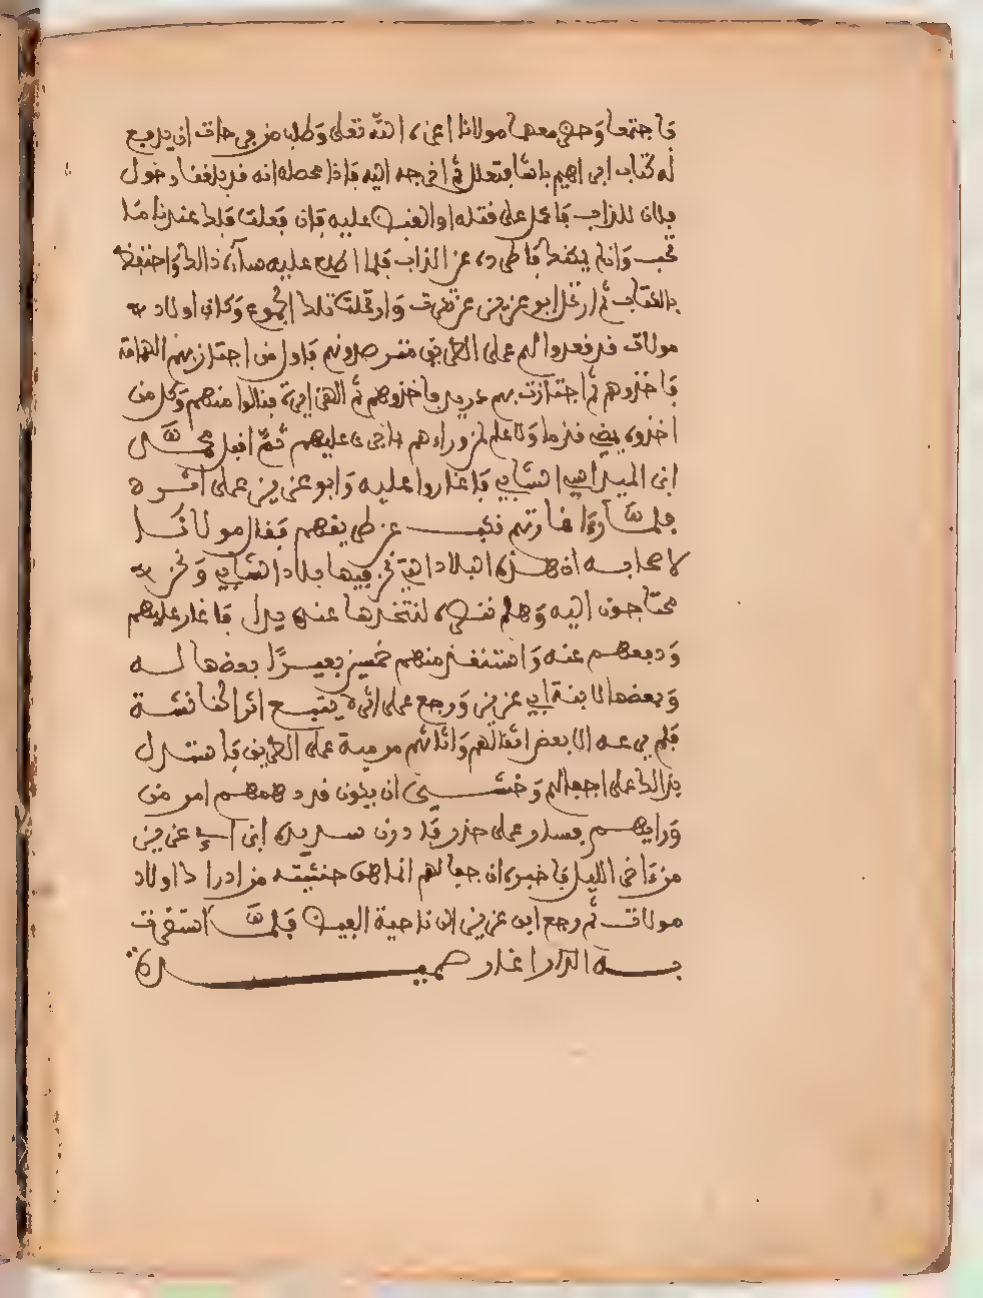 فاجتمعا وحضر معهما مولانا اعزه الله تعلى وطلب من فرحات ان يدفع
له كتاب ابراهيم باشا فتعلل ثم اخرجه اليه فاذا محصله انه قد بلغنا دخول
فلان للزاب فاعمل على قتله او القبض عليه فان فعلت فلك عندنا ما
تحب وان لم يمكنك فاطرده عن الزاب فلما اطلع عليه ساءه ذالك واحتفظ
بالكتاب ثم ارتحل ابو عزيز عن تقرت وارتحلت تلك الجموع وكان اولاد
مولات قد قعدوا لهم على الطريق مترصدونهم فاول من اجتاز بهم الهمامة
فاخذوهم ثم اجتازت بهم دريد فاخذوهم ثم الفراقة فنالوا منهم وكل من
اخذوه يمضي قدما ولا علم لمن وراءهم بما جرى عليهم ثم اقبل محمد
ابن الميدابي الشابي فاغاروا عليه وابو عزيز على اثره
فلما رءا غارتهم نكب عن طريقهم فقال مولانا
لاصحابه ان هذه البلاد التي نحن فيها بلاد الشابي ونحن
محتاجون اليه وهلم نتخذها عنده يدا فاغار عليهم
ودفعهم عنه واستنقذ منهم خمسين بعيرا بعضها له
وبعضها لابنة ابي عزيز ورجع على اثره يتبع اثر الحنانشة
فلم يرعه الا بعض اثقالهم واثاثهم مرمية على الطريق فاستدل
بذالك على اجفالهم وخشي ان يكون قد دهمهم امر من
ورايهم فسار على حذر فلا دون سريره ابن ابي عزيز
من ءاخر الليل فاخبره ان جفالهم انما هو خشية من ادراك اولاد
مولات ثم رجع ابو عزيز الى ناحية الفيض فلما استقرت
به الدار اغار صميده